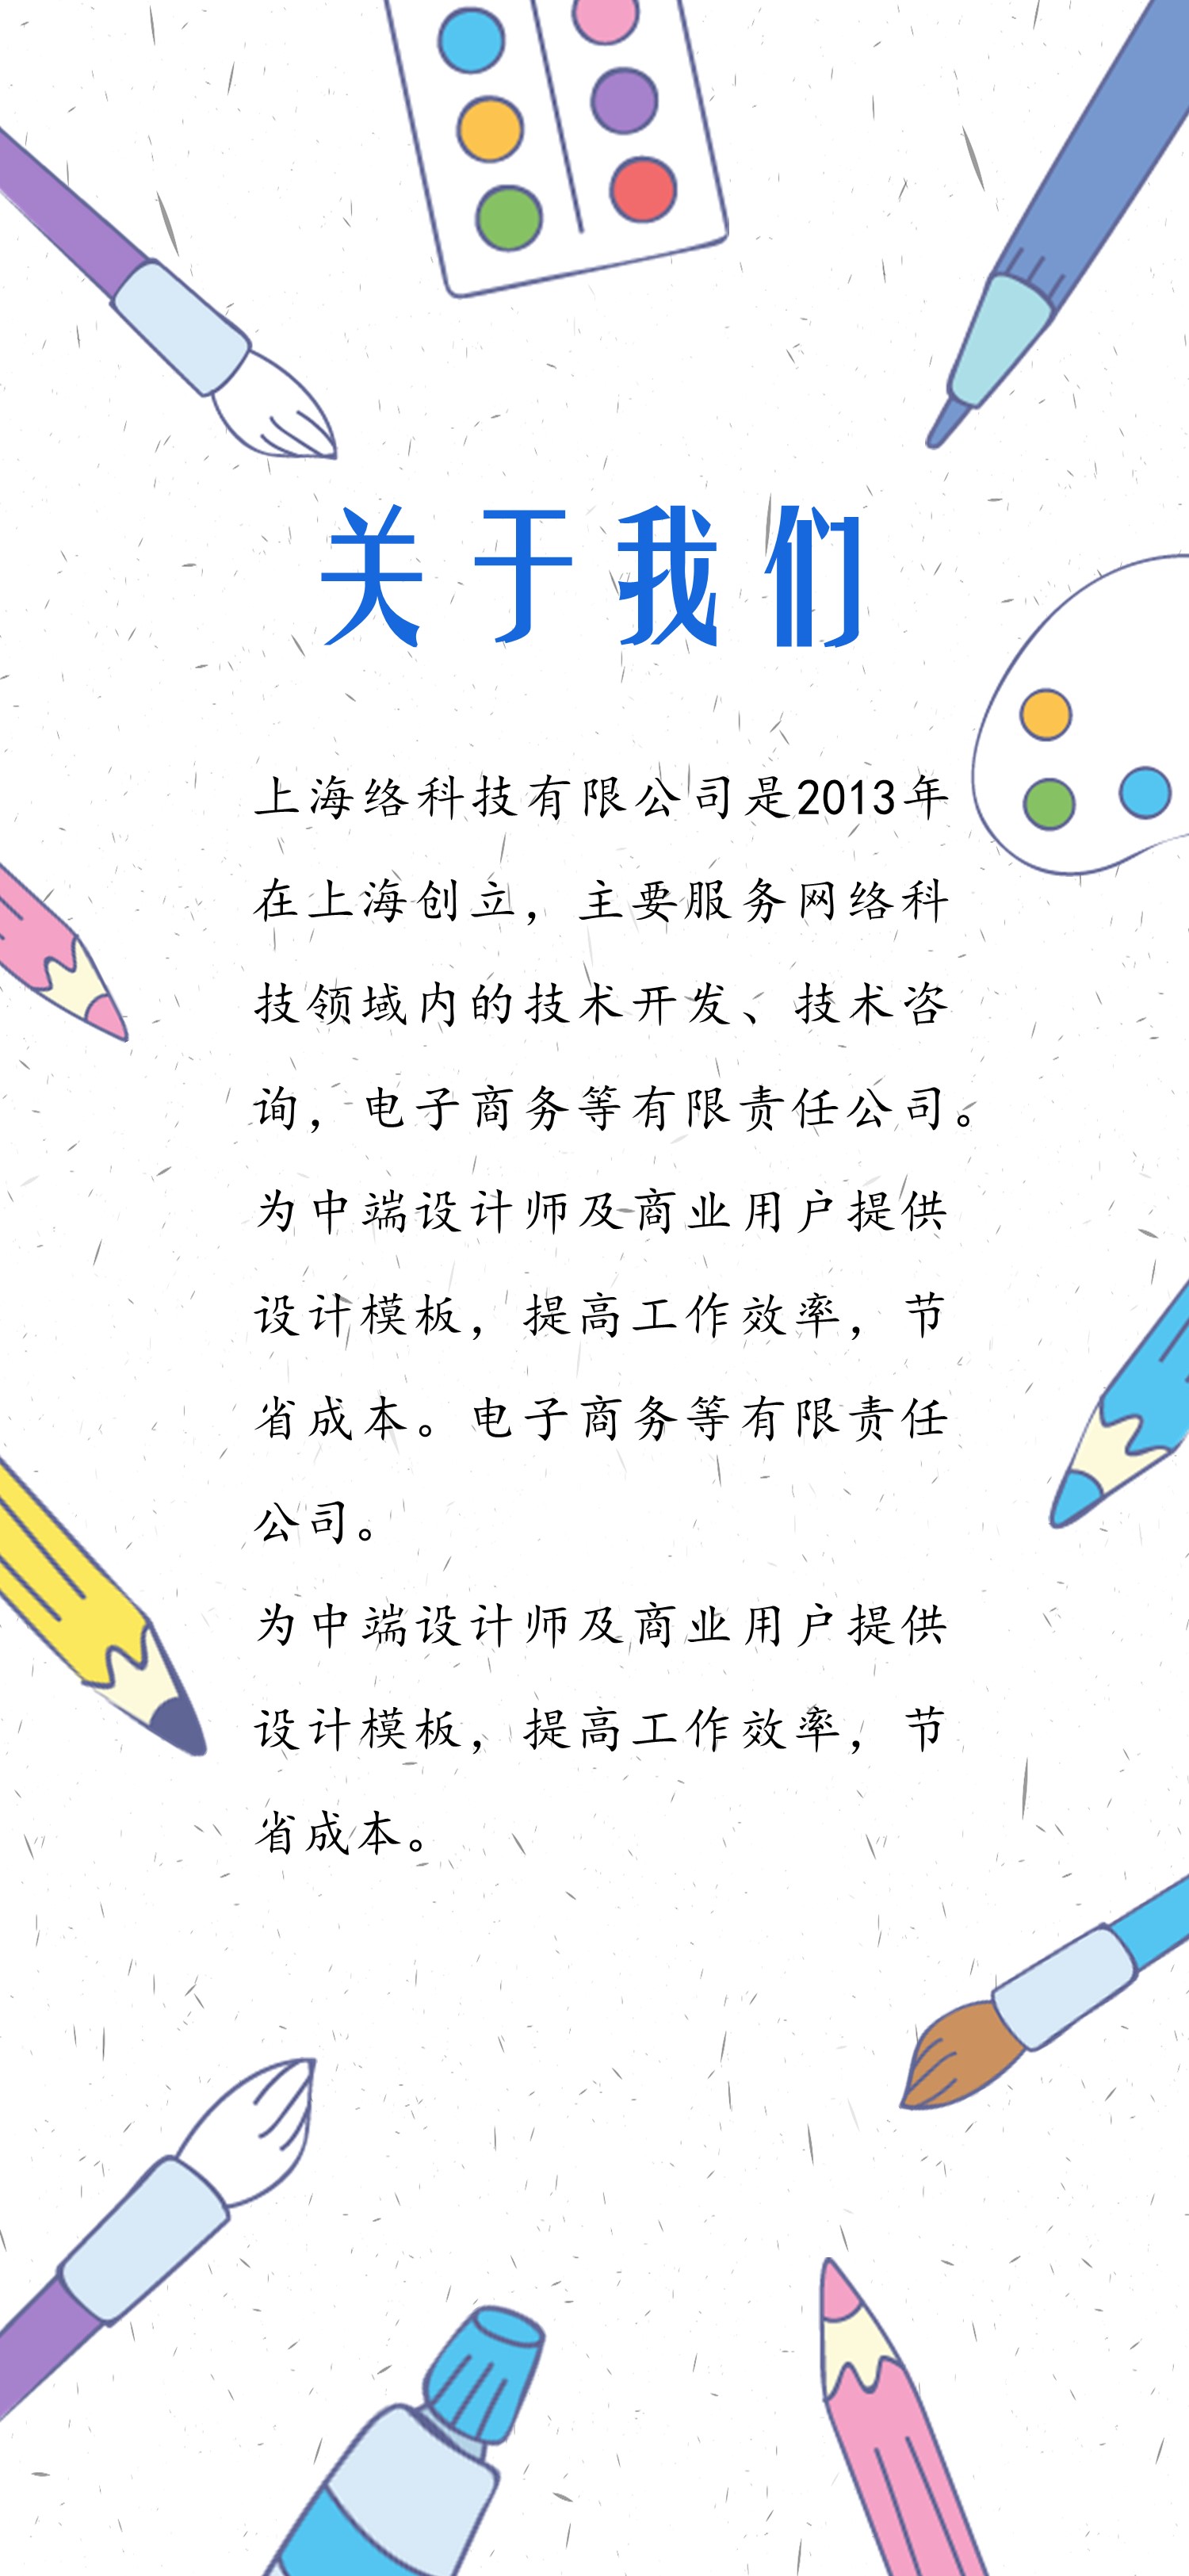 关于我们
上海络科技有限公司是2013年
在上海创立，主要服务网络科
技领域内的技术开发、技术咨
询，电子商务等有限责任公司。
为中端设计师及商业用户提供
设计模板，提高工作效率，节
省成本。电子商务等有限责任
公司。
为中端设计师及商业用户提供
设计模板，提高工作效率，节
省成本。